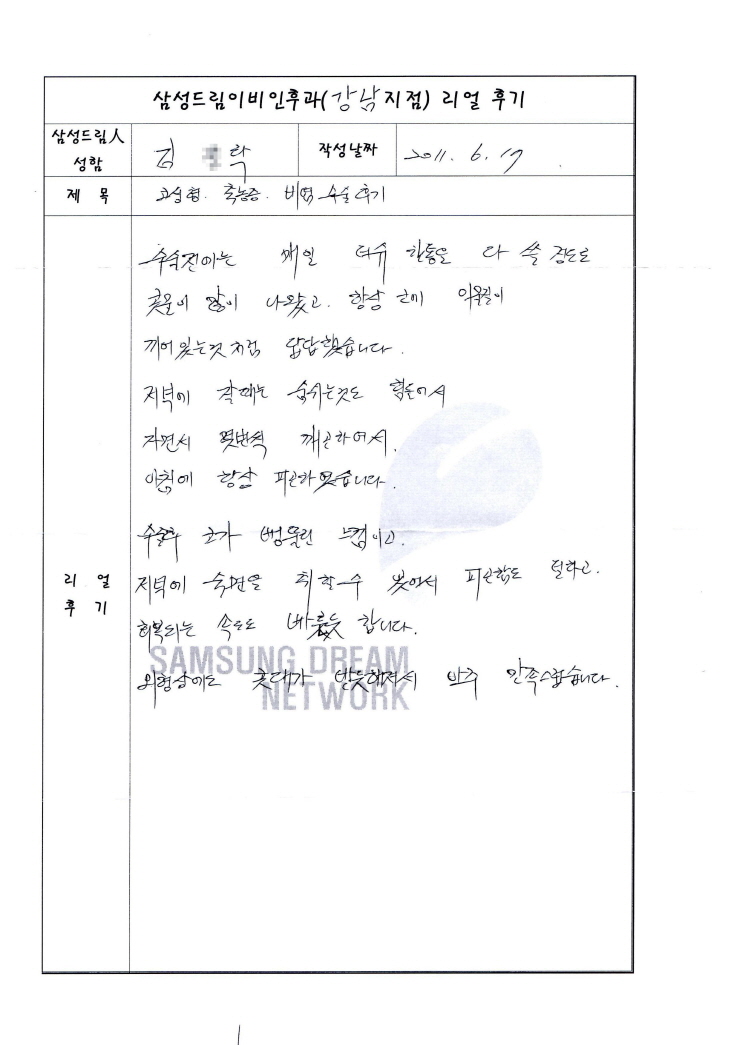 삼성드림이비인후과(강남지점) 리얼 후기
삼성드림人 성함
김 락
작성날짜
2011. 6. 17
제 목
코성형. 축농증. 비염 수술후기
수술전에는 매일 티슈 한통을 다 쓸 정도로
콧물이 많이 나왔고. 항상 코에 이물질이
끼어 있는것 처럼 답답했습니다.
저녁에 잘때는 숨쉬는것도 힘들어서
자면서 몇번씩 깨곤하여서.
아침에 항상 피곤하였습니다.
리 얼
후 기
수술후 코가 뻥뚤린 느낌이고.
저녁에 숙면을 취할수 있어서 피곤함도 덜하고.
회복되는 속도도 빠른듯 합니다.
외형상에도 콧대가 반듯해져서 아주 만족스럽습니다.
SAMSUNG DREAM
NETWORK